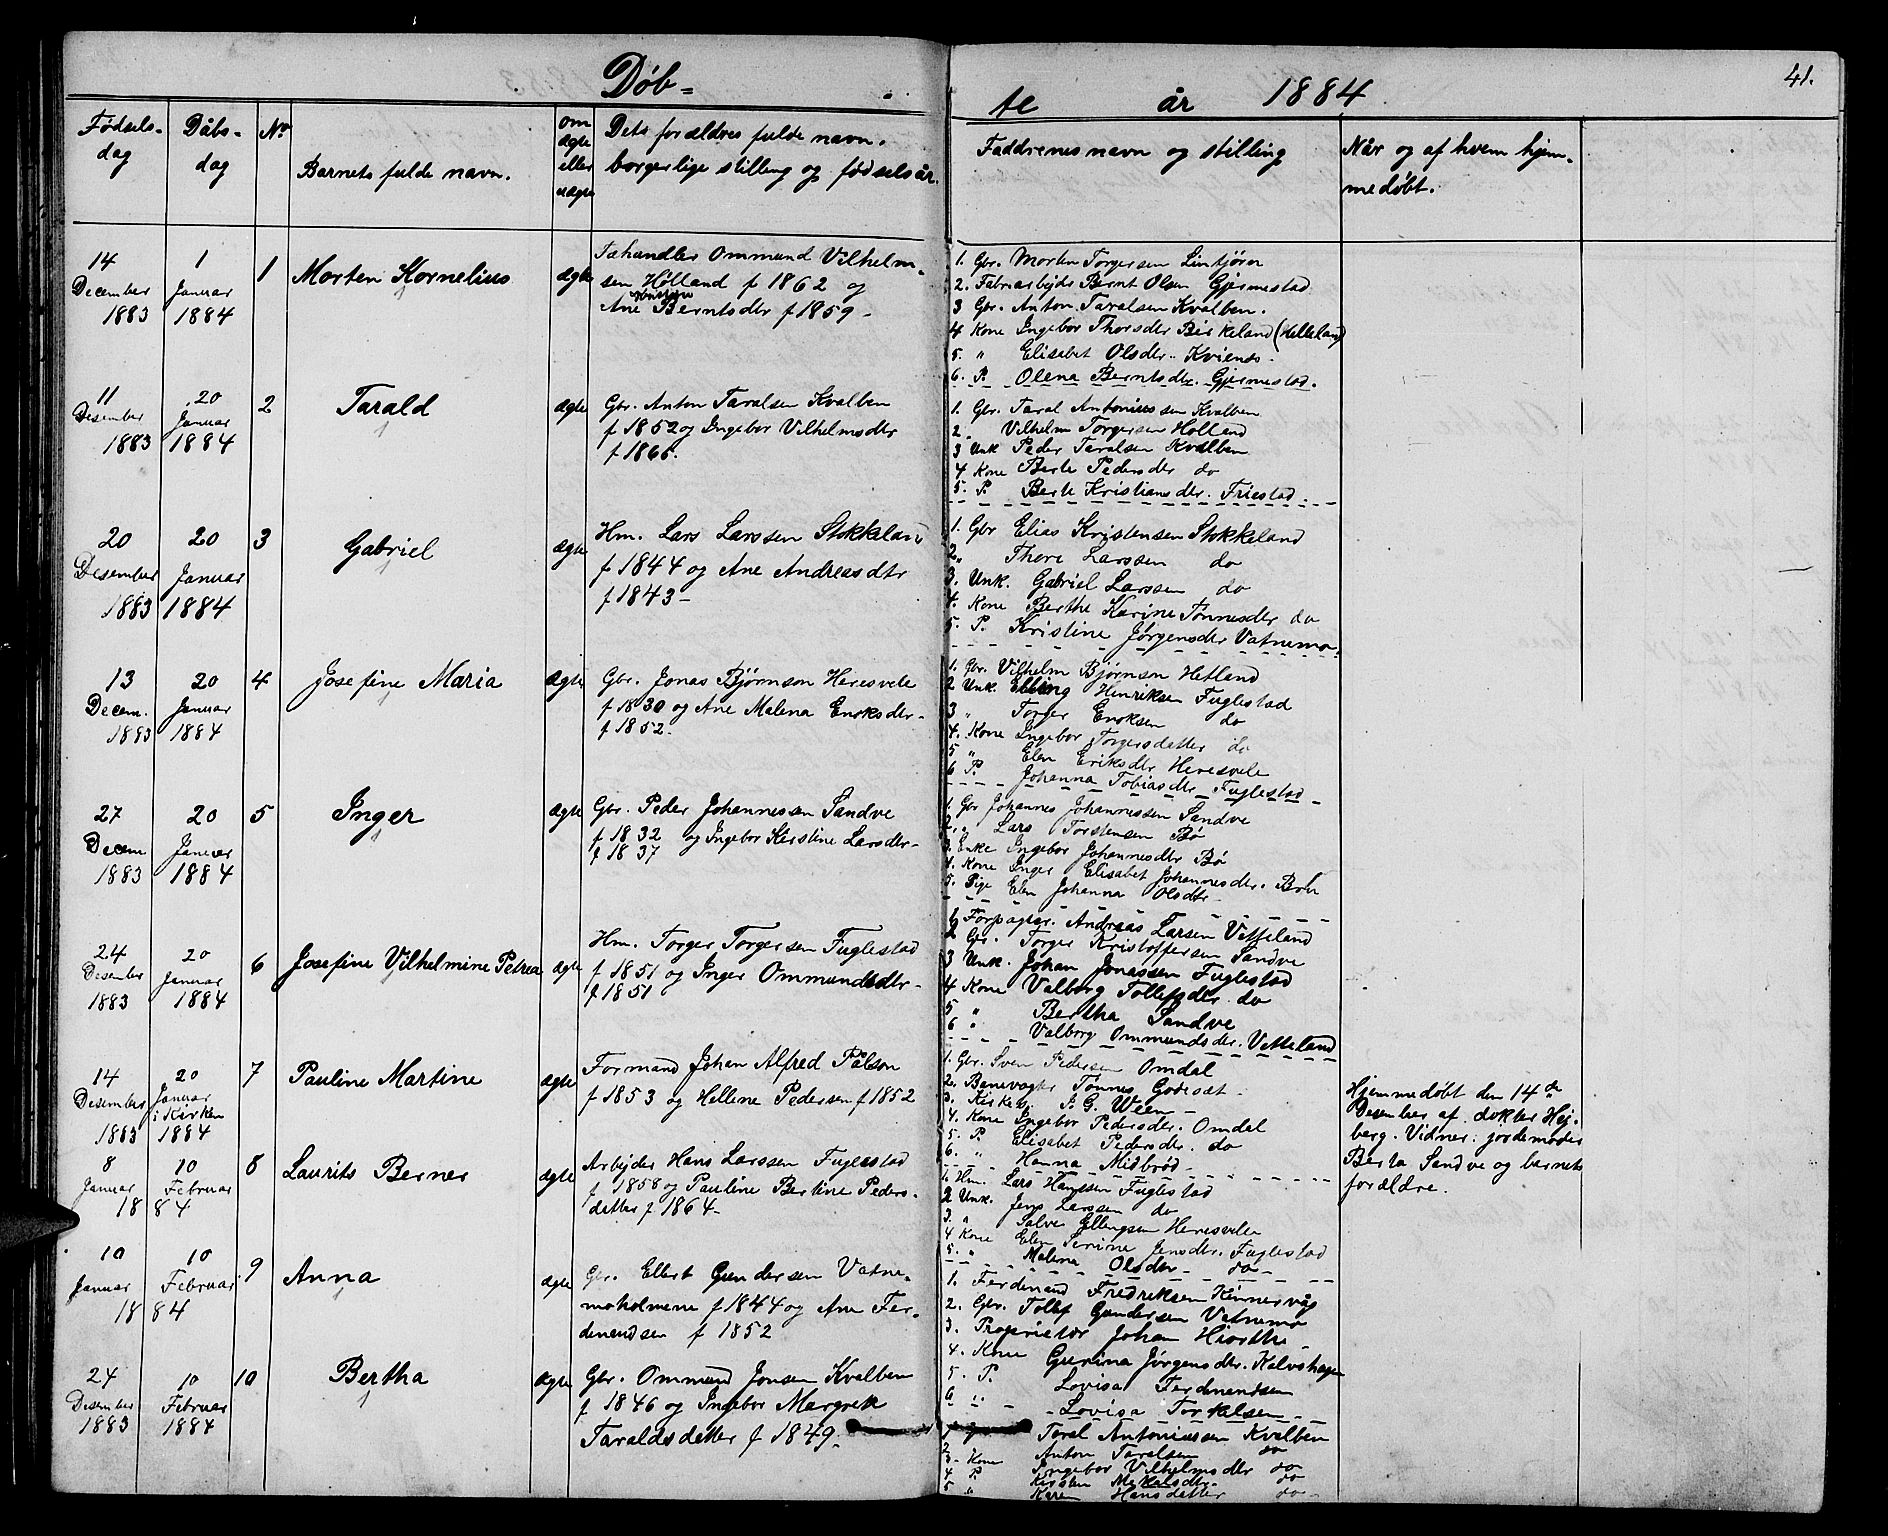 Døb-
te år 1884
41.
Fødsels-
dag
Dåbs-
dag
No
Barnets fulde navn.
om
ægte
eller
uægte
Dets forældres fulde navn.
borgerlige stilling og fødselsår.
Faddrenes navn og stilling
Når og af hvem hjem-
medøbt.
14
December
1883
1
Januar
1884
1
Morten Kornelius
ægte
Ommund Vilhelm-
sen Hølland f 1862 og
Ane Berntsdtr f 1859-
1. Gbr. Morten Torgersen Lintjørn
2. Fabriarbejdr Bernt Olsen Gjermestad
3 Gbr. Anton Taralsen Kvalben.
4 Kone Ingebor Thorsder Birkeland (Helleland)
5. " Elisabet Olsder. Kviens-
6. P. Olena Berntsdtr. Gjermestad.
11
Desember
1883
20
Januar
1884
2
Tarald
ægte
Gbr. Anton Taralsen Kvalben
f 1852 og Ingebor Vilhelmsdtr
f 186
1. Gbr. Taral Antoniussen Kvalben
2. Vilhelm Torgersen Holland
3 Unk Peder Taralsen Kvalben
4. Kone Berte Pedersder do
5. P. Berte Kristiansder. Friestad
20
Desember
1883
20
Januar
1884
3
Gabriel
ægte
Hm. Lars Larssen Stokkeland
f 1844 og Ane Andreasdtr
f 1843-
1. Gbr Elias Kristensen Stokkeland
2. " Thore Larssen do
3. Unk. Gabriel Larssen do
4. Kone Berthe Karine Tønnesder do
5. P. Kristine Jørgensder Vatnemo.
13
Decem.
1883
20
Januar
1884
4
Josefine Maria
ægte
Gbr. Jonas Bjørnson Heresvele
f 1830 og Ane Malena Enoksder-
f 1852.
1. Gbr. Vilhelm Bjørnson Hetland
2 Unk. Elling Henriksen Fuglestad
3 " Torger Enoksen do
4. Kone Ingebor Torgersdetter do
5 " Elen Eriksder Heresvele
6 P. Johanna Tobiasder Fuglestad
27
Decem
1883
20
Januar
1884
5
Inger
ægte
Gbr. Peder Johannessen Sandve
f 1832 og Ingebor Kirstine Larsder-
f 1837
1. Gbr Johannes Johannessen Sandve
2. " Lars Torstensen Bø
3. Enke Ingebor Johannesder Bø
4. Kone Inger Elisabet Johannesder.
5. Pige Elen Johanna Olsdtr-
24
Desember
1883
20
Januar
1884
6
Josefine Vilhelmine Petrea
ægte
Hm. Torger Torgersen Fuglestad
f 1851 og Inger Ommundsdtr-
f 1851
1 Forpagter. Andreas Larsen Vetteland
2 Gbr. Torger Kristoffersen Sandve
3 Unk. Johan Jonassen Fuglestad
4 Kone Valborg Tollefsder. do
5 " Bertha Sandve
6 " Valborg Ommundsder. Vetteland
14
Desember
1883
20
Januar
i Kirken
1884
7
Pauline Martine
ægte
Formand Johan Alfred Pålson
f 1853 og Hellene Pedersen f 1852
1. Gbr. Sven Pedersen Omdal
2. Banevogter Tønnes Godeset.
3. Kirkes. P. G. Ween-
4. Kone Ingebor Pedersder. Omdal
5. P. Elisabet Pedersder. do
6. " Hanna Midbrød-
Hjemmedøbt den 14de
Desember af dokter Hej-
berg. Vidner: jordemoder
Berta Sandve og barnets
forældre.
8
Januar
1884
10
Februar
8
Laurits Berner
ægte
Arbejder Hans Larssen Fuglestad
f 1858 og Pauline Bertine Peders-
detter f 1864-
1. Hm. Lars Hanssen Fuglestad
2 Unk. Jens Larssen do
3. " Salve Ellingsen Heresvele
4 Kone Elen Serine Jensder. Fuglestad
5. " Malena Olsdtr- do-
10
Januar
1884
10
Februar
9
Anna
ægte
Gbr. Ellert Gundersen Vatne-
moholmene f 1844 og Ane Fer-
dinandsen f 1852
1. Ferdinand Fredriksen Kinnervåg
2. Gbr. Tollef Gundersen Vatnemo
3. Proprietær Johan Hiorthe
4. Kone Gurina Jørgensder. Kelvshagen
5. P. Lovisa Ferdinandsen
6 " Lovisa Torkelsen
24
Desember
1883
10
Februar
1884
10
Bertha
ægte
Gbr. Ommund Jonsen Kvalben
f 1846 og Ingebor Margrete
Taraldsdetter f 1849.
1 Taral Antoniassen Kvalben
2 Anton Taralsen do
3- Kone Ingebor Vilhelmsder do
4 P. Kirsten Mekalsdtr. do
5 " Karen Hansdetter do-